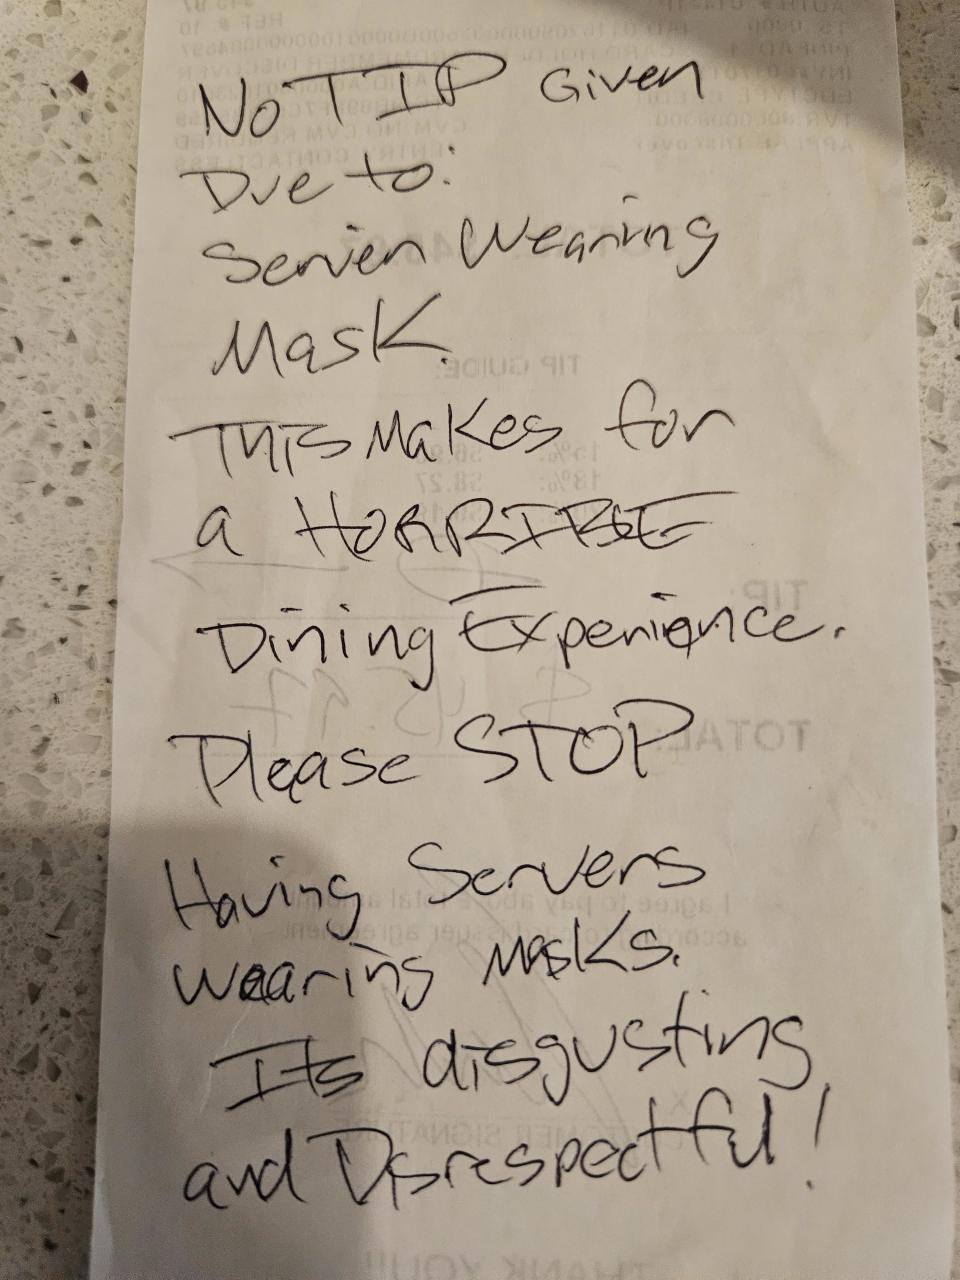 No TIP Given
Due to:
Server Wearing
Mask.
THIS Makes for
a HORRIBLE
Dining Experience.
Please STOP
Having Servers
wearing Masks.
Its disgusting
and Disrespectful!
TIP GUIDE:
15%:
18%: $8.27
TIP:
$45.97
TOTAL:
I agree to pay above total
according to card issuer agreement
X
CUSTOMER SIGNATURE
THANK YOU!!